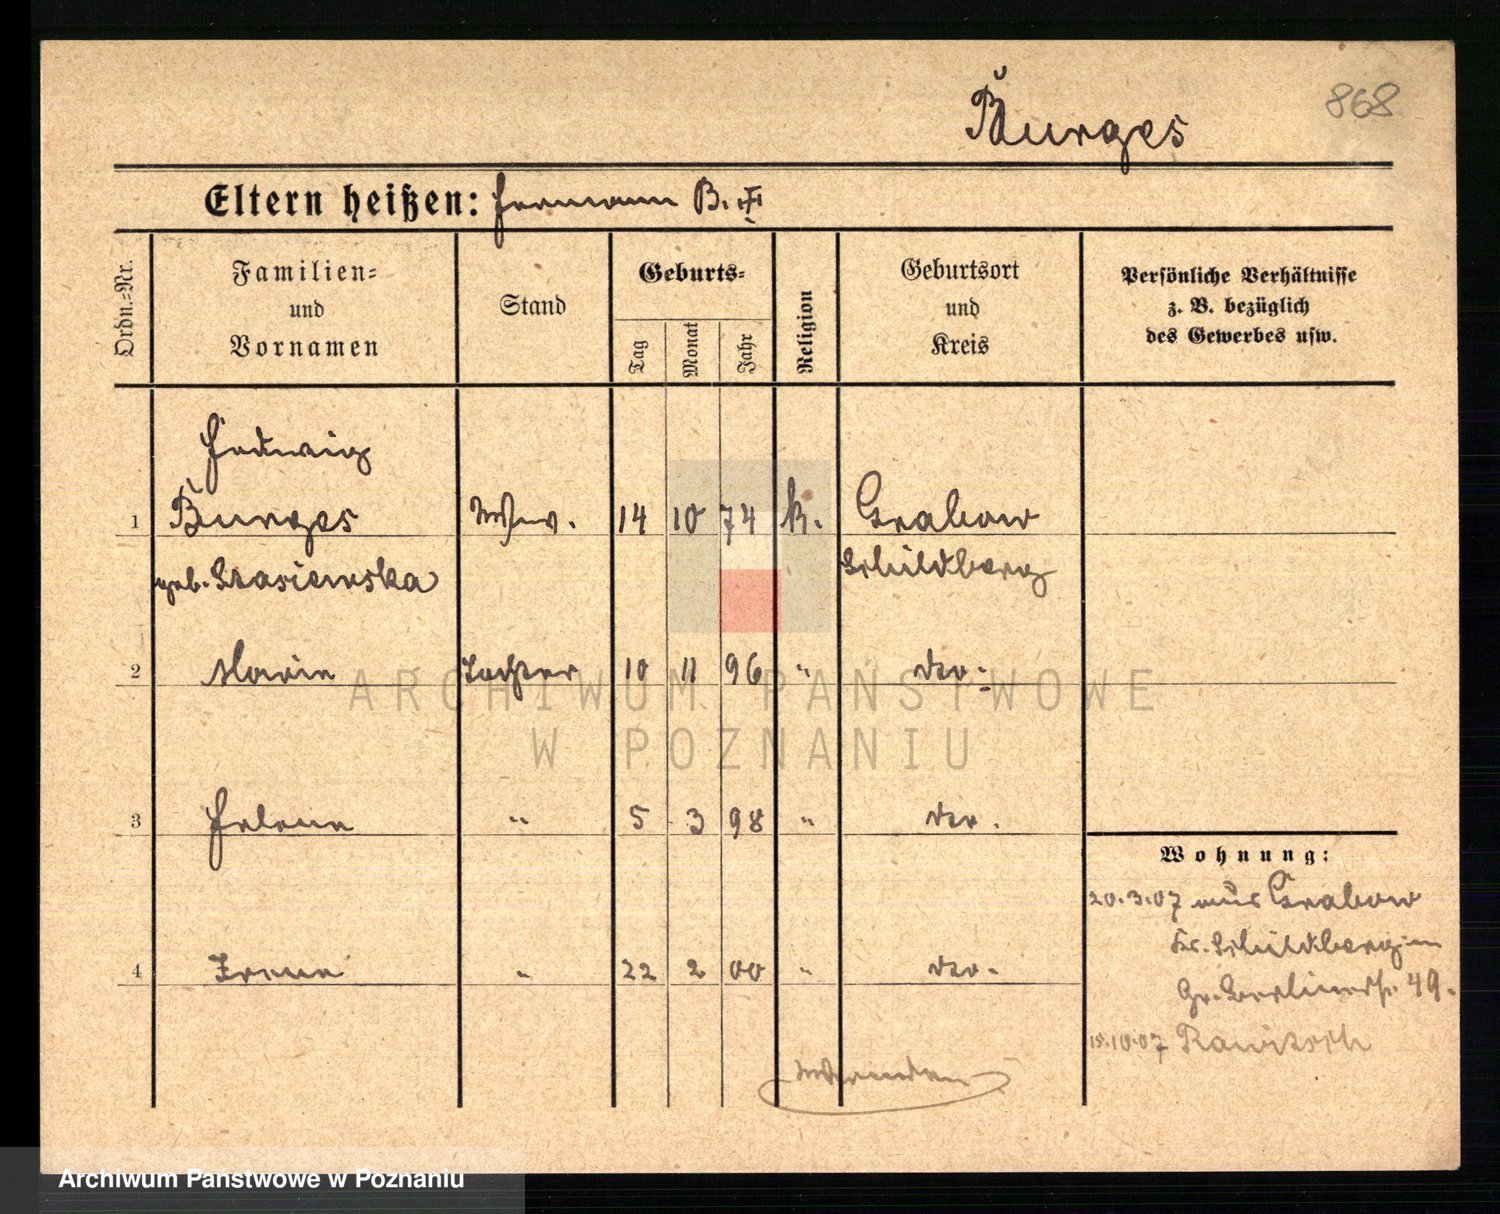 868
Burges
Eltern heißen: Hermann B. †
Ordn.-Nr.
Familien-
und
Vornamen
Stand
Geburts-
Tag
Monat
Jahr
Religion
Geburtsort
und
Kreis
Persönliche Verhältnisse
z. B. bezüglich
des Gewerbes usw.
Hedwig
1 Burges Wwe. 14 10 74 k. Grabow
geb. Stasiewska Schildberg
2 Marie Tochter 10 11 96 " do.
3 Helene " 5 3 98 " do.
4 Irene " 22 2 00 " do.
Wohnung:
20.3.07 aus Grabow
Kr. Schildberg in
Gr. Berlinerstr. 49.
15.10.07 Rawitsch
ARCHIWUM PAŃSTWOWE
W POZNANIU
Archiwum Państwowe w Poznaniu